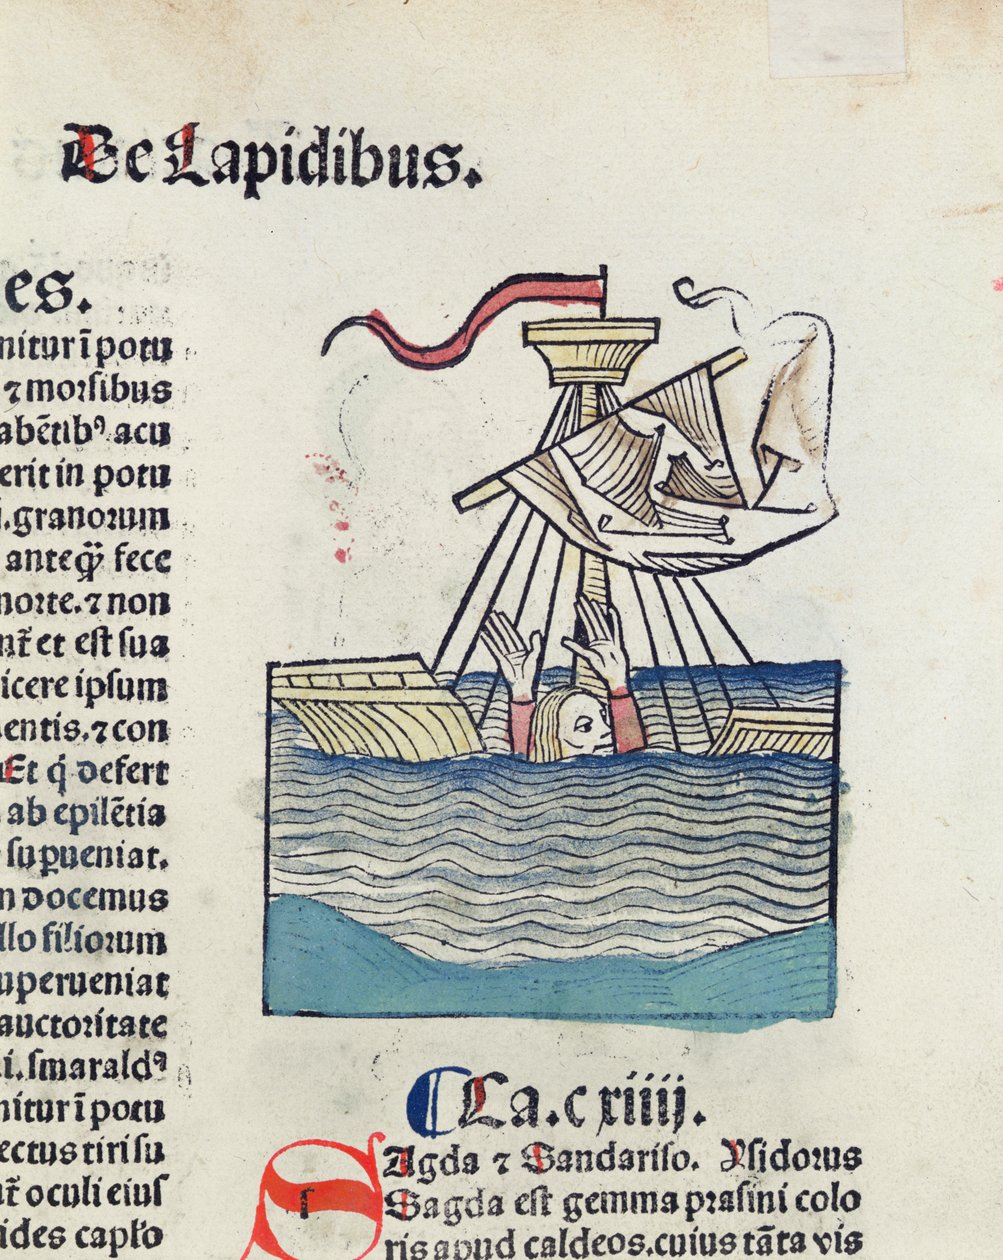 De Lapidibus.
es.
nitur ī potu
⁊ morsibus
abētibꝰ acu
erit in potu
.granorum
anteqꝫ̄ fece
morte.⁊ non
et est sua
icere ipsum
entis.⁊ con
Et q̇ defert
ab epilētia
suꝑueniat.
n docemus
llo filiorum
uperueniat
auctoritate
i.smaraldꝰ
nitur ī potu
ectus tiri su
oculi eius
ides capło
Ca.cxiiij.
SAgda ⁊ Sandariso. Ysidorus
Sagda est gemma prasini colo
ris apud caldeos.cuius tāta vis